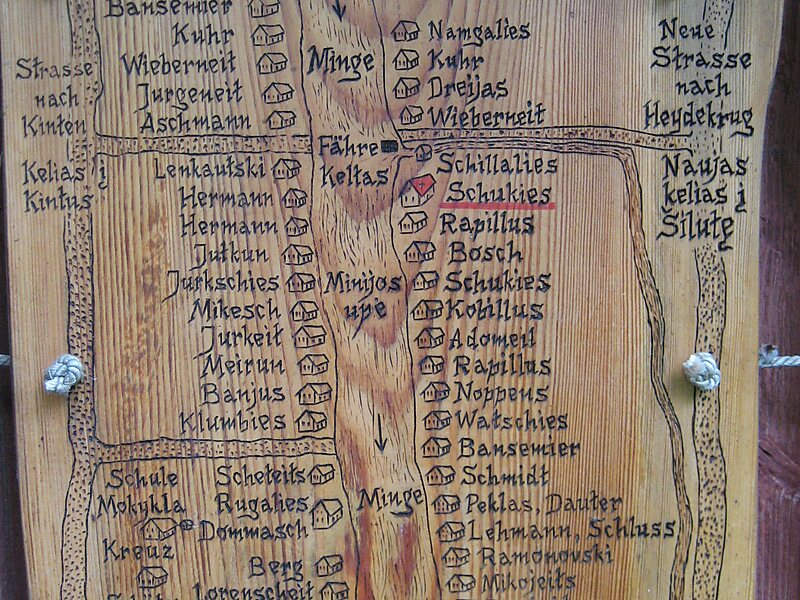 Bansemier
Kuhr
Wieberneit
Jurgeneit
Aschmann
Strasse
nach
Kinten
Kelias į
Kintus
Lenkautski
Hermann
Hermann
Jutkun
Jurkschies
Mikesch
Jurkeit
Meirun
Banjus
Klumbies
Schule
Mokykla
Kreuz
Scheteits
Rugalies
Dommasch
Berg
Lorenscheit
Minge
Fähre
Keltas
Minijos
upė
Minge
Namgalies
Kuhr
Dreijas
Wieberneit
Schillalies
Schukies
Rapillus
Bosch
Schukies
Kobillus
Adomeit
Rapillus
Noppens
Watschies
Bansemier
Schmidt
Peklas, Dauter
Lehmann, Schluss
Ramonovski
Mikojeits
Neue
Strasse
nach
Heydekrug
Naujas
kelias į
Šilutę